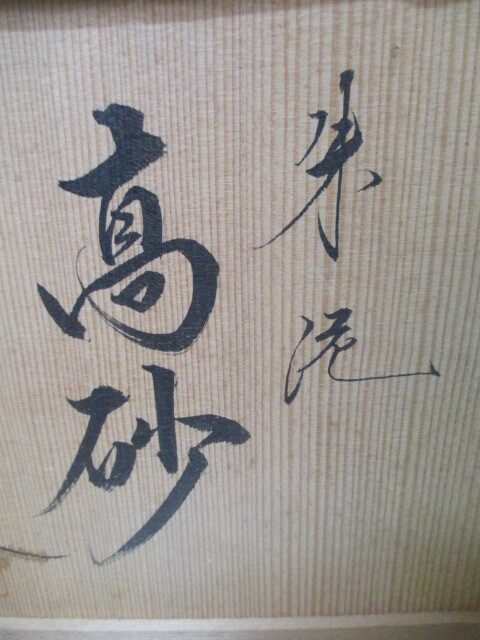 朱泥
高砂